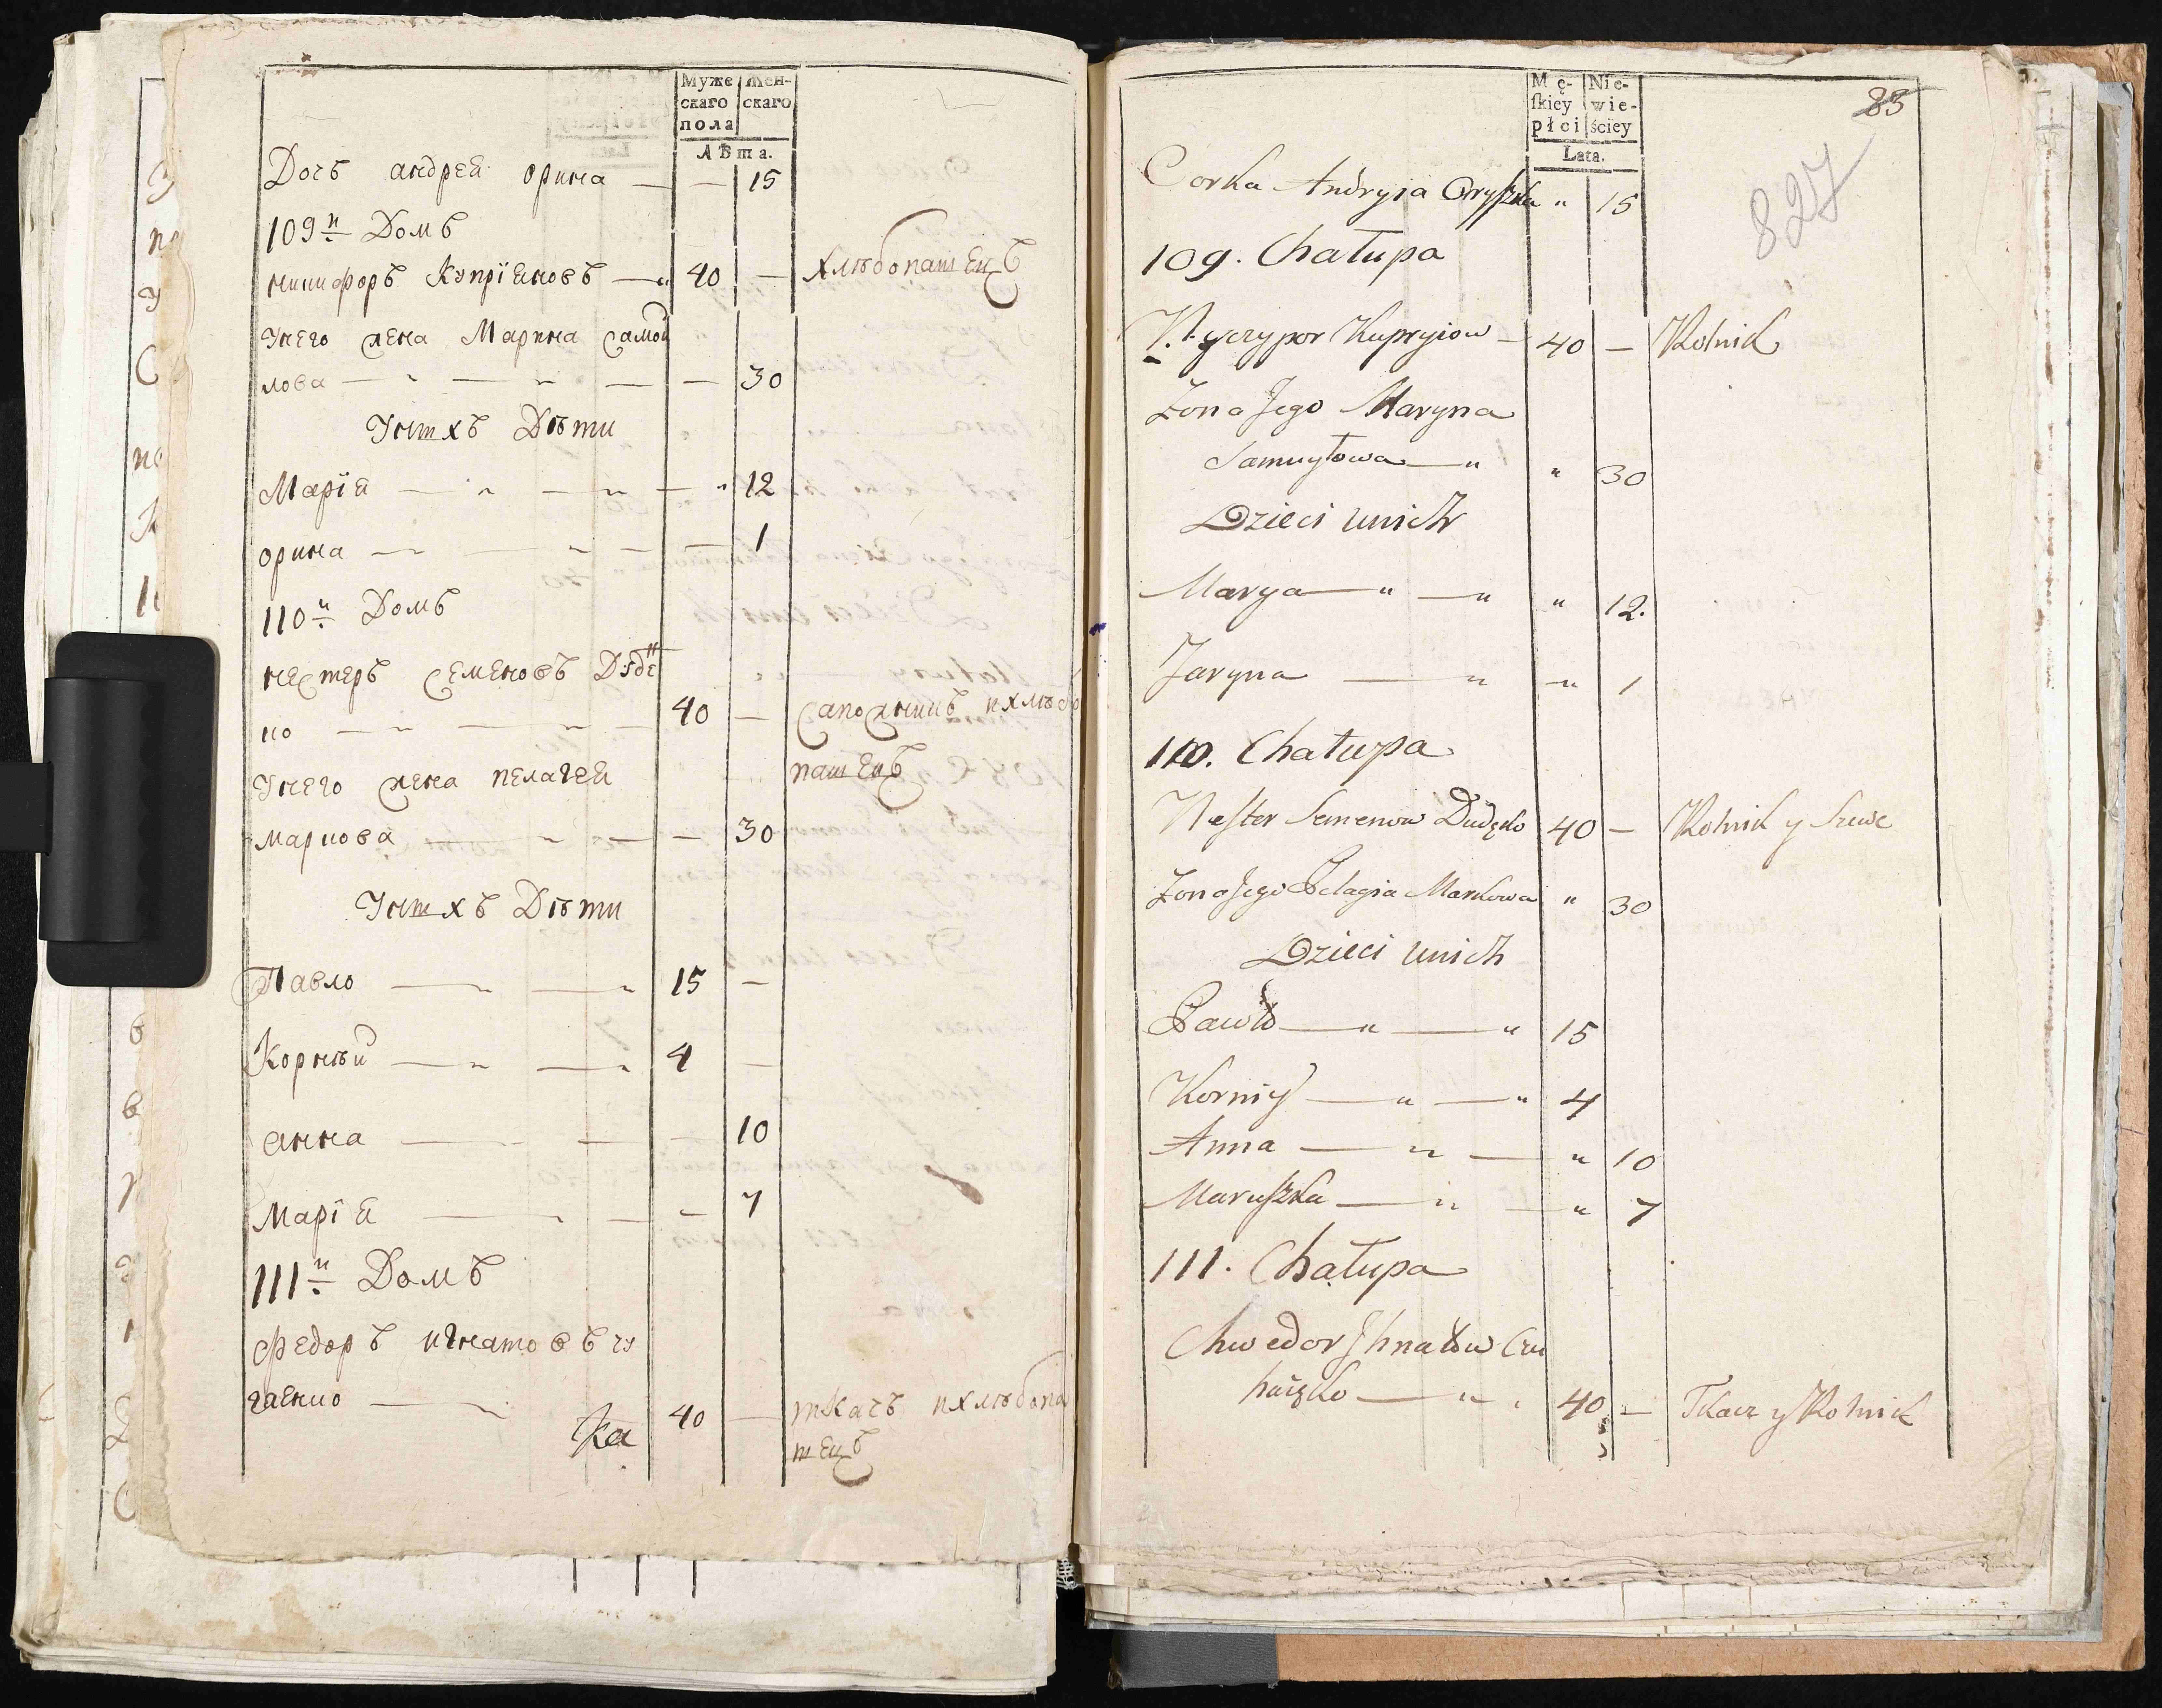 Муже
скаго
пола
Жен-
скаго
Лѣта.
Дочь андрея орина — — 15
109й Домъ
никифоръ Купріяновъ — 40 — хлѣбопашецъ
Унего жена Марина Самой
лова — — — 30
Унихъ Дѣти
Марія — — — 12
орина — — — 1
110й Домъ
нестеръ Семеновъ Дуде
но — — 40 — сапожникъ ихлѣбо
пашецъ
Унего жена пелагея
маркова — — — 30
Унихъ Дѣти
Павло — — 15 —
Корнѣй — — 4 —
анна — — — 10
Марія — — — 7
111й Домъ
Федоръ игнатовъ чу
гаенко — 40 — ткачъ ихлѣбопа
шецъ
Ка
Mę-
ſkiey
płci
Nie-
wie-
ściey
Lata.
83
827
Corka Andryia Oryſzka " 15
109. Chałupa
Nyczypor Kupryiow — 40 — Rolnik
Zona Jego Maryna
Samuyłowa — " " 30
Dzieci unich
Marya — " — " " 12.
Jaryna — " — " 1
110. Chałupa
Neſter Semenow Dudęko 40 — Rolnik y Szewc
Zona Jego Pelagia Markowa " 30
Dzieci unich
Pawło — " — " 15
Korniy — " — " 4
Anna — " — " 10
Maruſzka — " — " 7
111. Chałupa
Chwedor Jhnatow Czu
haięko — " 40 — Tkacz y Rolnik